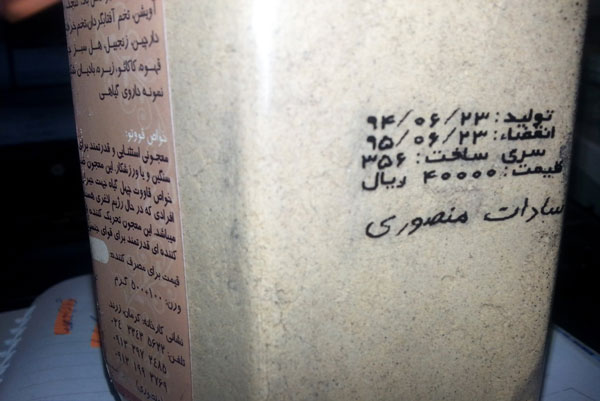 آویشن، تخم آفتابگردان، تخم خر
دارچین، زنجبیل، هل سبز
قهوه، کاکائو، زیره، بادیان
نمونه داروی گیاهی
خواص قووتو:
معجونی استثنایی و قدرتمند برای
سنگین و یا ورزشکار. این معجون
خواص قاووت چهل گیاه
افرادی که در حال رژیم لاغری
میباشد. این معجون تحریک کننده
کننده ای قدرتمند برای قوای
قیمت برای مصرف کننده:
وزن: ۱۰۰±۵۰۰ گرم
نشانی کارخانه: کرمان، زرند
تلفن: ۵۶۲۲ ۳۳۴۳ ۰۳۴
۰۹۱۳ ۳۹۷ ۲۴۸۵
۰۹۱۳ ۱۹۹ ۳۷۶۹
تولید: ۹۴/۰۶/۲۳
انقضاء: ۹۵/۰۶/۲۳
سری ساخت: ۳۵۶
قیمت: ۴۰۰۰۰ ریال
سادات منصوری